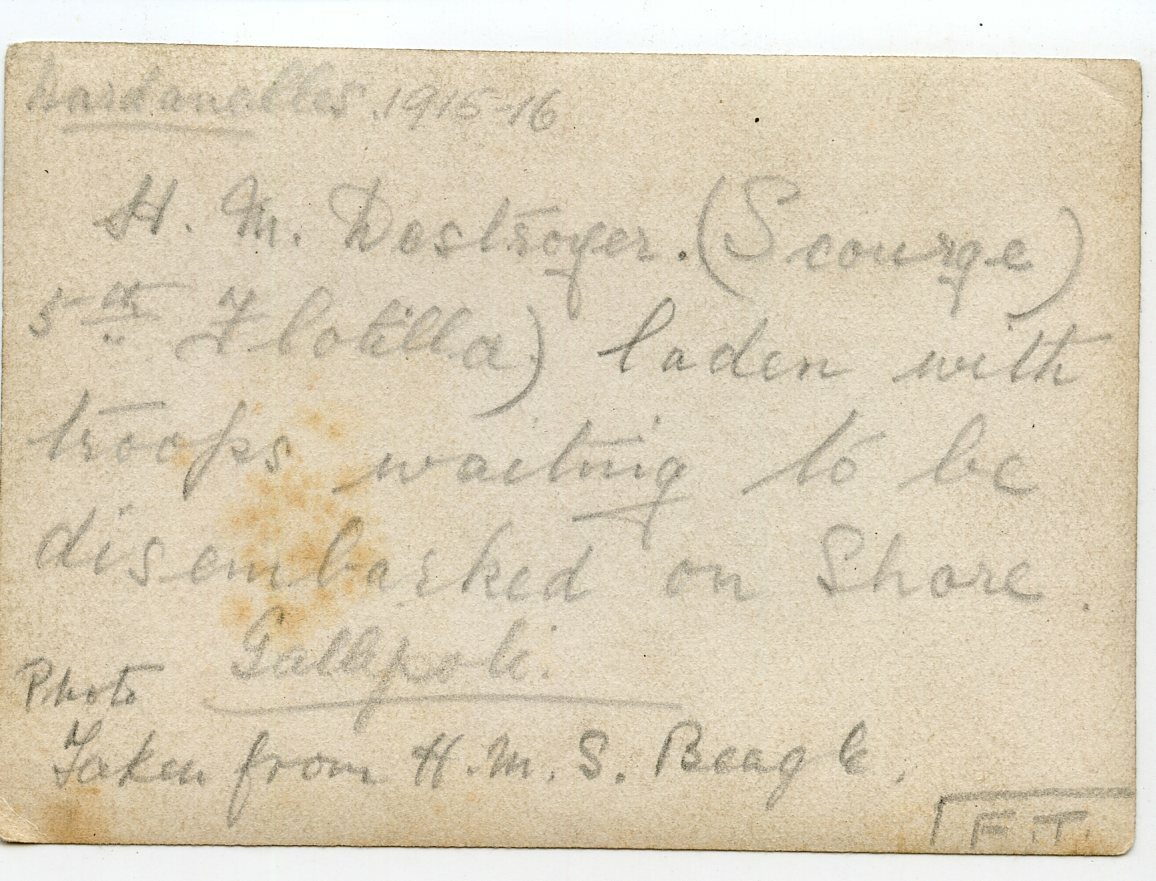 Dardanelles. 1915-16
H. M. Destroyer. (Scourge)
5th Flotilla) laden with
troops waiting to be
disembarked on Shore.
Gallipoli.
Photo
Taken from H.M.S. Beagle.
F.T.